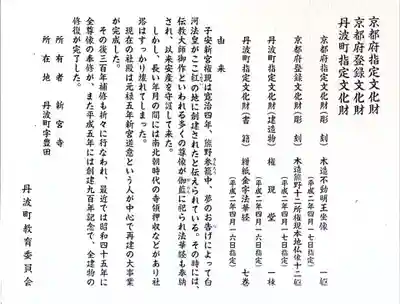 京都府指定文化財
京都府登録文化財
丹波町指定文化財
京都府指定文化財(彫刻) 木造不動明王坐像 一躯
(平成二年四月一七日指定)
京都府登録文化財(彫刻) 木造熊野十二所権現本地仏像十二躯
(平成二年四月一七日指定)
丹波町指定文化財(建造物) 権現堂 一棟
(平成二年四月一六日指定)
丹波町指定文化財(書籍) 紺紙金字法華経 七巻
(平成二年四月一六日指定)
由来
子安新宮権現は寛治四年、熊野参籠中、夢のお告げによって白
河法皇がここ紅の地に創建されたと伝えられている。その時には、
伝教大師御作といわれる多くの尊像が伽藍に祀られ法華経も奉納
され、以来安産を守護して来た。
しかし、長い年月の間には南北朝時代の寺領押収などがあり社
塔はすっかり壊れてしまった。
現在の社殿は元禄五年新宮道意という人が中心で再建の大事業
が完成した。
その後三百年補修も折々に行なわれ、最近では昭和四十五年に
全尊像の奉修が、また平成五年には創建九百年記念で、全建物の
修復が完了した。
所有者 新宮寺
所在地 丹波町字豊田
丹波町教育委員会